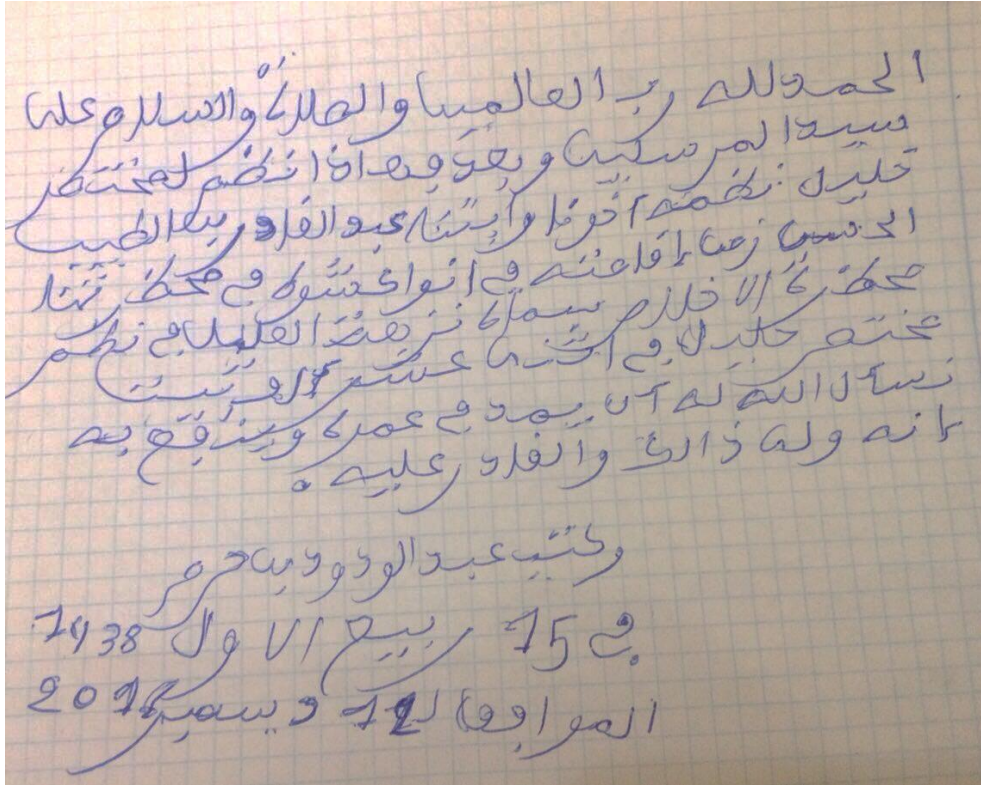 الحمد لله رب العالمين والصلاة والسلام على
سيد المرسلين وبعد فهذا نظم لمختصر
خليل نظمه أخونا وابننا عبد القادر بن الطيب
الحسن زمن إقامته في انواكشوط في محظرتنا
محظرة الاخلاص سماه نزهة الخليل في نظم
مختصر خليل في عشر الف بيت
نسأل الله له أن يمد في عمره وينفع به
إنه ولي ذالك والقادر عليه.
وكتب عبد الودود بن
في 15 ربيع الاول 1438
الموافق ل ديسمبر